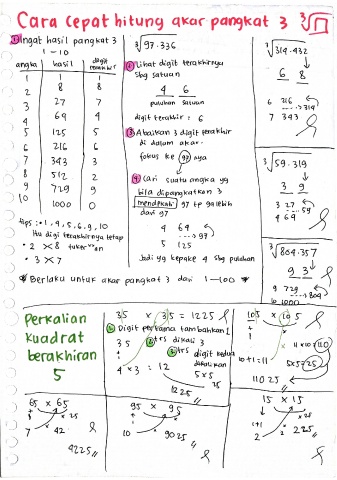 Cara cepat hitung akar pangkat 3 ∛
① Ingat hasil pangkat 3
1 - 10
angka hasil digit terakhir
1 1 1
2 8 8
3 27 7
4 64 4
5 125 5
6 216 6
7 343 3
8 512 2
9 729 9
10 1000 0
tips : • 1, 4, 5, 6, 9, 10
itu digi terakhirnya tetap
• 2 × 8 tuker²an
• 3 × 7
* Berlaku untuk akar pangkat 3 dari 1-100 *
∛97.336
② Lihat digit terakhirnya
sbg satuan
4 6
puluhan satuan
digit terakhir : 6
③ Abaikan 3 digit terakhir
di dalam akar.
fokus ke 97 nya
④ Cari suatu angka yg
bila dipangkatkan 3
mendekati 97 tp ga lebih
dari 97
4 64
→ 97
5 125
Jadi yg kepake 4 sbg puluhan
∛314.432
6 8
6 216
→ 314
7 343
∛59.319
3 9
3 27
→ 59
4 64
∛804.357
9 3
9 729
→ 804
10 1000
Perkalian
Kuadrat
berakhiran
5
35 × 35 = 1225
① Digit pertama tambahkan 1
35 ② trs dikali 3
③ trs digit kedua
dikalikan
4 × 3 = 12
5 × 5
25
1225
105 × 105
10+1 = 11
11 × 10 = 110
5×5 = 25
11025
65 × 65
+
7 42
× 25
4225
95 × 95
10
9025
15 × 15
1+1
× 25
2 2
225